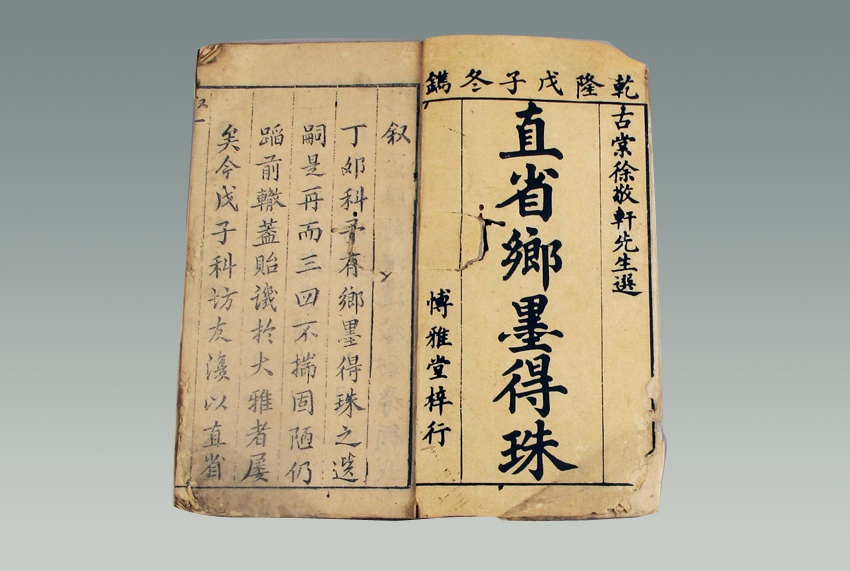 乾隆戊子冬鐫
古棠徐敬軒先生選
直省鄉墨得珠
愽雅堂梓行
叙
丁卯科予有鄉墨得珠之选
嗣是再而三四不揣固陋仍
蹈前轍蓋貽譏扵大雅者屡
矣今戊子科坊友復以直省
叙一